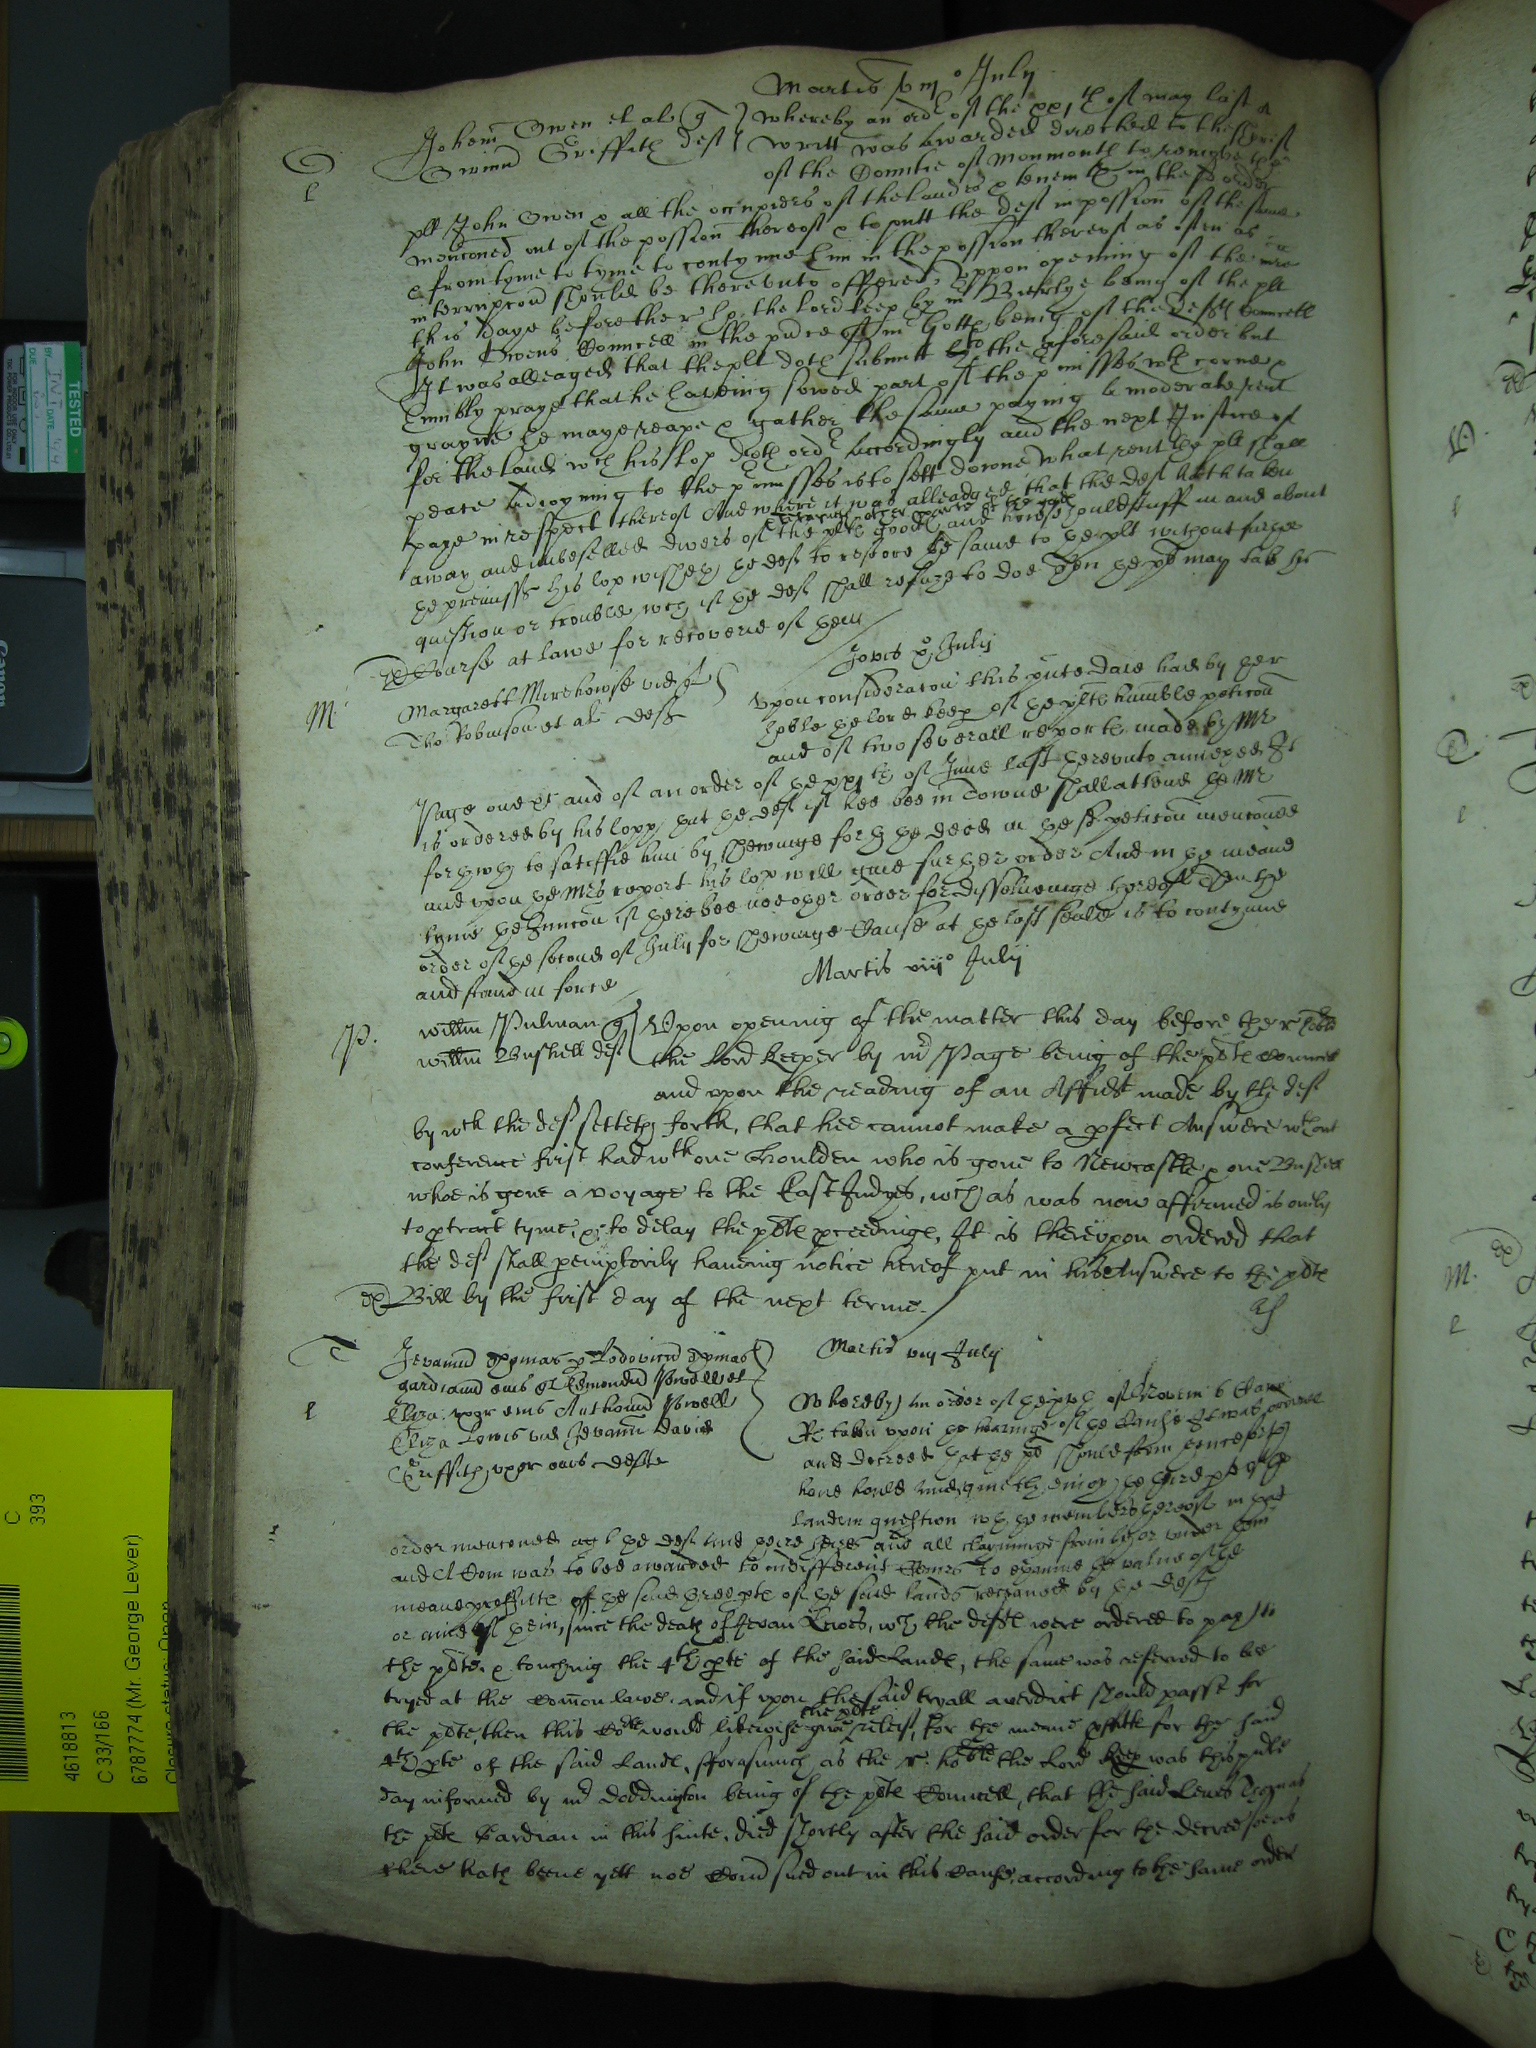 Martis viij° July
Johem Owen et al q
Owinu Griffith def
Whereby an ordr of the xxjth of may last a
writt was awarded directed to the Sherif
of the Countie of Monmouth to remove the
plt John Owen & all the occupiers of the landes & tenemtes in the sd order
menconed out of the possion thereof & to putt the def in possion of the same
& from tyme to tyme to contynue him in the possion thereof as often as
interrupcon should be thereunto offered, Uppon opening of the
this daye before the r Lp the lord keep by mr being of the plt
John Owens Councell in the pnce of mr being of the defts Councell
It was alleaged that the plt doth submitt to the aforesaid order but
humbly praye that he having sowed part of the pmisses wth corne &
grayne he maye reape & gather the same paying a moderate rent
for the land wch his lop doth ordr accordingly and the next Justice of
peace adioyning to the pmisses is to sett downe what rent the plt shall
paye in respect thereof And where it was alleadged that the def hath taken
away and imbeselled divers of the plts goodes and howshouldstuff in and about
the premisses his lop wisheth the def to restore the same to the plt without furthe
question or trouble wch if the def shall refuze to doe then the plt may take his
Course at lawe for recoverie of them
M
Jovis x July
Margarett Mirehowse vid q
Tho Robinson et al def
Upon consideracon this pnte daie had by the r
hoble the lord keep of the plts humble peticon
and of two severall reportes made by Mr
Page one &c and of an order of the xxjth of June last hereunto annexed It
is ordered by his lopp that the def if hee bee in towne shall attend the Mr
forthwth to satisfie him by shewinge forth the deed in the sd peticon menconed
and upon the Mrs report his lop will give further order And in the meane
tyme the Iniuncon if there bee noe other order for dissolvinge thereof then the
order of the second of July for shewinge Cause at the last seale is to contynue
and stand in force
Martis viij° July
P.
Willm Pulman q
Willm Bushell def
Upon openning of the matter this day before the r hoble
the Lord keeper by mr Page being of the plts Councell
and upon the reading of an Affidt made by the def
by wch the def setteth forth, that hee cannot make a pfect Answere wthout
conference first had wth one Houlden who is gone to Newcastle & one Bushell
whoe is gone a voyage to the East Indyes, wch as was now affirmed is onely
to ptract tyme & to delay the plts pceedinge, It is thereupon ordered that
the def shall pemptorily haveing notice hereof put in his Answere to the plts
Bill by the first day of the next terme.
T
Martis viij July
Jevannu Thomas p Lodovicu Thomas
gardianu eius q Edmondu Powell et
Eliza uxor eius Anthoniu Powell
Eliza Lewis vid Jevannu David
Griffith, uxor eius defte
Whereby an order of the of Novem 6 Caro
Rs taken upon the hearinge of the Cause It was ordered
and decreed that the plt should from henceforth
have hould and quietly enioy the three ptes of the
land in question wth the members thereof in that
order menconed agt the def and theire heires and all clayminge from by or under them
and a Com was to bee awarded to indifferent Comrs to examine the value of the
meane proffitte of the said three ptes of the said landes receaved by the defts
or anie of them, since the death of Jevan Lewes, wch the defts were ordered to pay to
the plte & touching the 4th pte of the said Landes, the same was referred to be
tryed at the comon lawe, and if upon the said tryall a verdict should passe for
the plte, then this Cort would likewise give the plte releif, for the meane pffitts for the said
4th pte of the said Landes, fforasmuch as the r. hoble the Lord keep was this pnte
day informed by mr Doddington being of the plts Councell, that the said Lewes Thomas
the plts Gardian in this suite, died shortly after the said order for the decree soe as
there hath beene yett noe Comd sued out in this cause, according to the same order
TESTED
4618813
C 33/166
6787774 (Mr. George Lever)
C
393
Canon